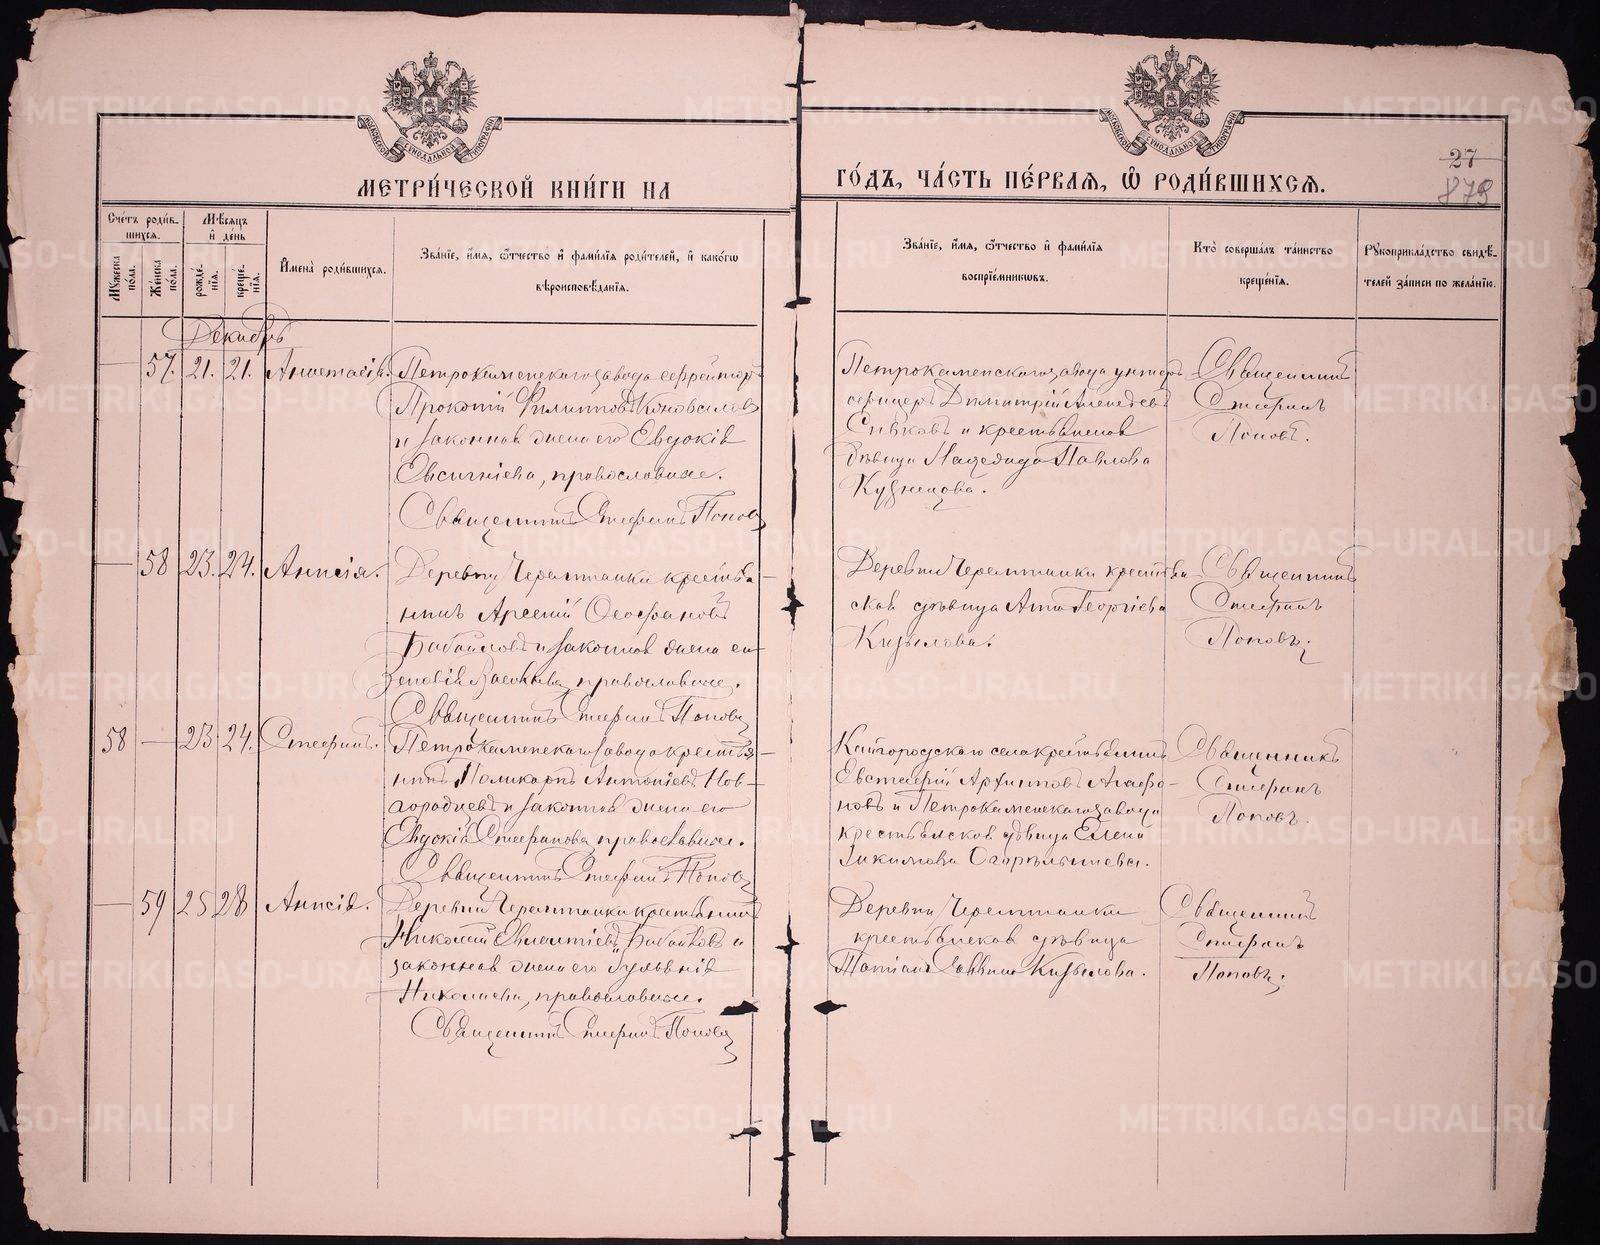 МЕТРИ́ЧЕСКОЙ КНИ́ГИ НА
ГО́ДЪ, ЧА́СТЬ ПЕ́РВАЯ, Ѽ РОДИ́ВШИХСЯ.
27
873
Сче́тъ роди́в-
шихся.
Мѣ́сяцъ
и҆ де́нь
Му́жеска по́ла.
Же́нска по́ла.
рожде́нїя.
креще́нїя.
И҆мена̀ роди́вшихся.
Зва́нїе, и҆́мя, ѻ҆́тчество и҆ фами́лїя роди́телей, и҆ како́гѡ
вѣроисповѣ́данїя.
Зва́нїе, и҆́мя, ѻ҆́тчество и҆ фами́лїя
воспрїе́мниковъ.
Кто̀ соверша́лъ та́инство
креще́нїя.
Рꙋкоприкла́дство свидѣ́-
телей за́писи по жела́нїю.
Декабрь
57. 21. 21. Анастасія.
Петрокаменскаго завода ефрейтор
Прокопій Филипповъ Коновалов
и законная жена его Евдокія
Евсигніева, православные.
Священникъ Стефанъ Поповъ
Петрокаменскаго завода унтер
офицеръ Димитрій Алексѣевъ
Сивковъ и крестьянская
дѣвица Надежда Павлова
Кузнецова.
Священникъ
Стефанъ
Поповъ.
58 23. 24. Анисія.
Деревни Черемшанки крестья-
нинъ Арсеній Ѳеофановъ
Бабайловъ и законная жена его
Зеновія, православные.
Священникъ Стефанъ Поповъ
Деревни Черемшанки крестьян-
ская дѣвица Анна Георгіева
Кизилова.
Священникъ
Стефанъ
Поповъ.
58 — 23 24. Стефанъ.
Петрокаменскаго завода крестья-
нинъ Поликарпъ Антоніевъ Нов-
городцевъ и законная жена его
Евдокія Стефанова, православные.
Священникъ Стефанъ Поповъ
Кайгородскаго села крестьянинъ
Евстафій Архиповъ Агафо-
новъ и Петрокаменскаго завода
крестьянская дѣвица Елена
Огорѣльшева.
Священникъ
Стефанъ
Поповъ.
59 25 28 Анисія.
Деревни Черемшанки крестьянинъ
Николай Бабайловъ и
законная жена его Іуліанія
Николаева, православные.
Священникъ Стефанъ Поповъ
Деревни Черемшанки
крестьянская дѣвица
Татіана Саввина Кизилова.
Священникъ
Стефанъ
Поповъ.
METRIKI.GASO-URAL.RU